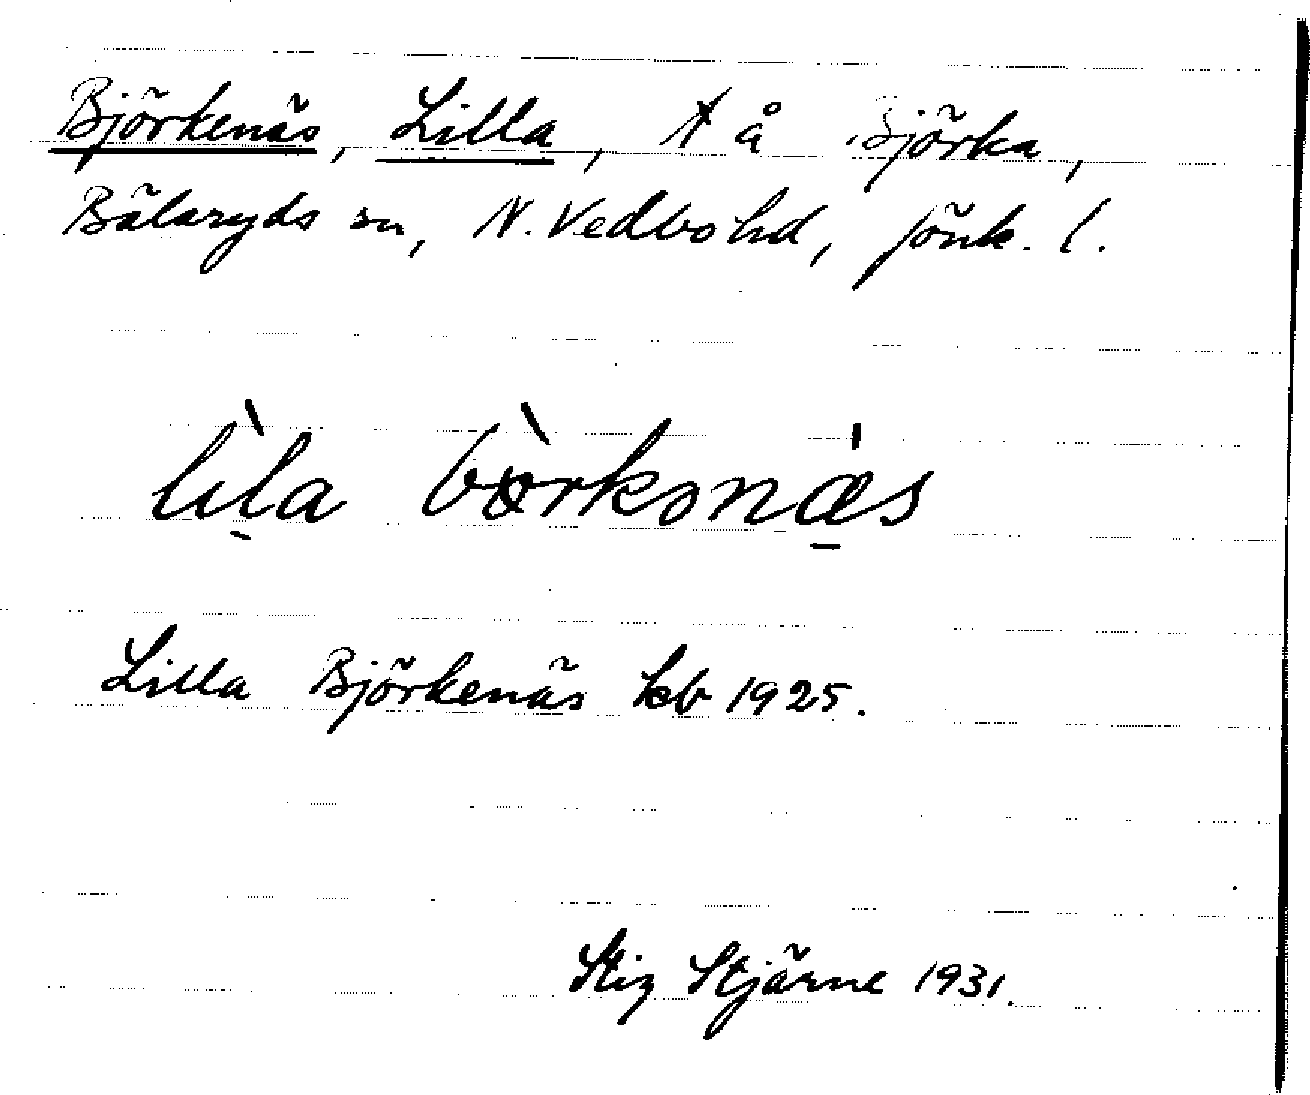 Björkenäs, Lilla, t å Björka,
Bälaryds sn, N. Vedbo hd, Jönk. l.
lìla bòrkənæs
Lilla Björkenäs kb 1925.
Stig Stjärne 1931.